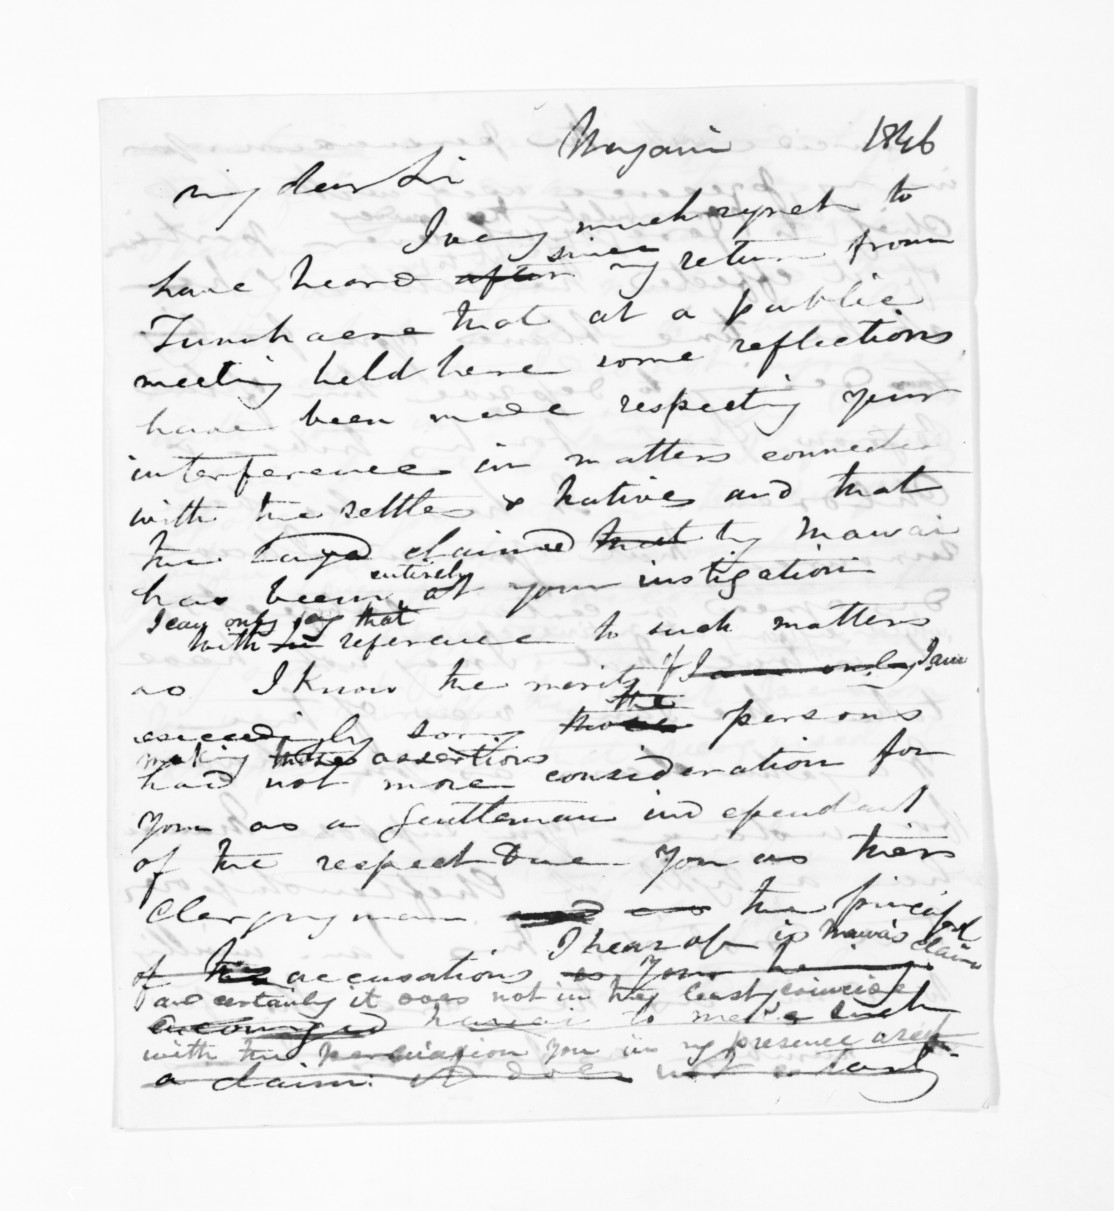 1846
My dear Sir
I very much regret to
have heard after since my return from
that at a public
meeting held here some reflections
have been made respecting your
interference in matters connected
with the settlers & Natives and that
the claimed that by Mawai
has been entirely at your instigation
I can only say that
With in reference to such matters
as I know the merits of I am only I am
exceedingly sorry those the persons
making these assertions
had not more consideration for
you as a gentleman independent
of the respect due you as their
Clergyman and as the principal
I hear of is Mawai's claim
of the accusations is your having
and certainly it does not in the least coincide
encouraged Mawai to make such
with the persuasion you in my presence
a claim. It does not